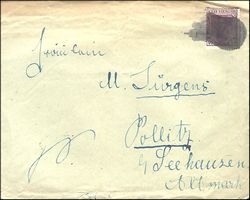 Fräulein
M. Jürgens
Pollitz
b/ Seehausen
Altmark